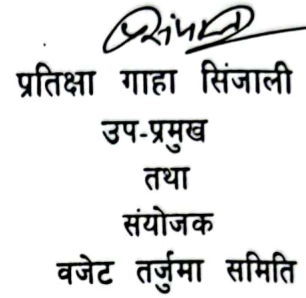 प्रतिक्षा गाहा सिंजाली
उप-प्रमुख
तथा
संयोजक
वजेट तर्जुमा समिति